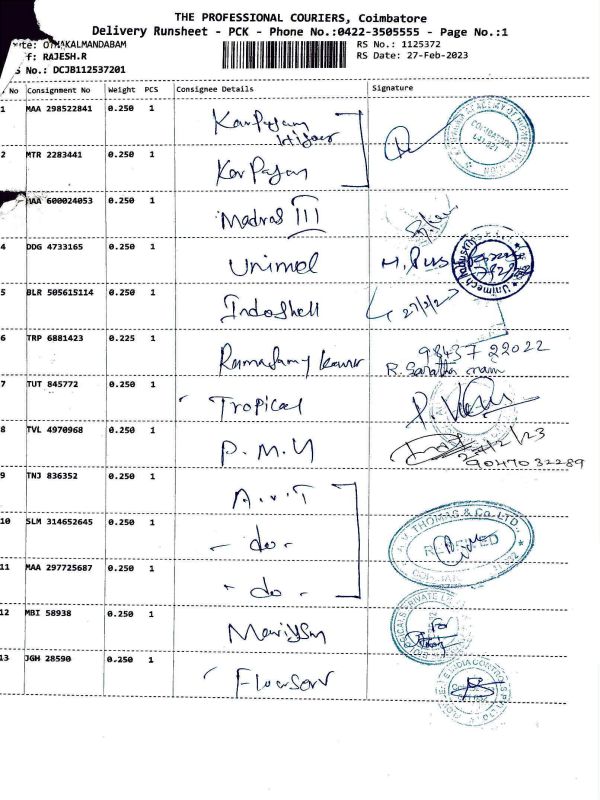 THE PROFESSIONAL COURIERS, Coimbatore
Delivery Runsheet - PCK - Phone No.:0422-3505555 - Page No.:1
OTHAKALMANDABAM RS No.: 1125372
RAJESH.R RS Date: 27-Feb-2023
S No.: DCJB112537201
No Consignment No Weight PCS Consignee Details Signature
1 MAA 298522841 0.250 1 Karpagam
2 MTR 2283441 0.250 1 Karpagam
MAA 600024053 0.250 1 Madras III
4 DDG 4733165 0.250 1 Unimel
5 BLR 505615114 0.250 1 Indoshell 27/2/2
6 TRP 6881423 0.225 1 98437 22022
7 TUT 845772 0.250 1 Tropical
8 TVL 4970968 0.250 1 P.M.Y
9047032289
9 TNJ 836352 0.250 1 A.V.T
10 SLM 314652645 0.250 1 - do - A.V. THOMAS & Co. LTD., RECEIVED
11 MAA 297725687 0.250 1 - do -
12 MBI 58938 0.250 1 For
13 JGH 28590 0.250 1